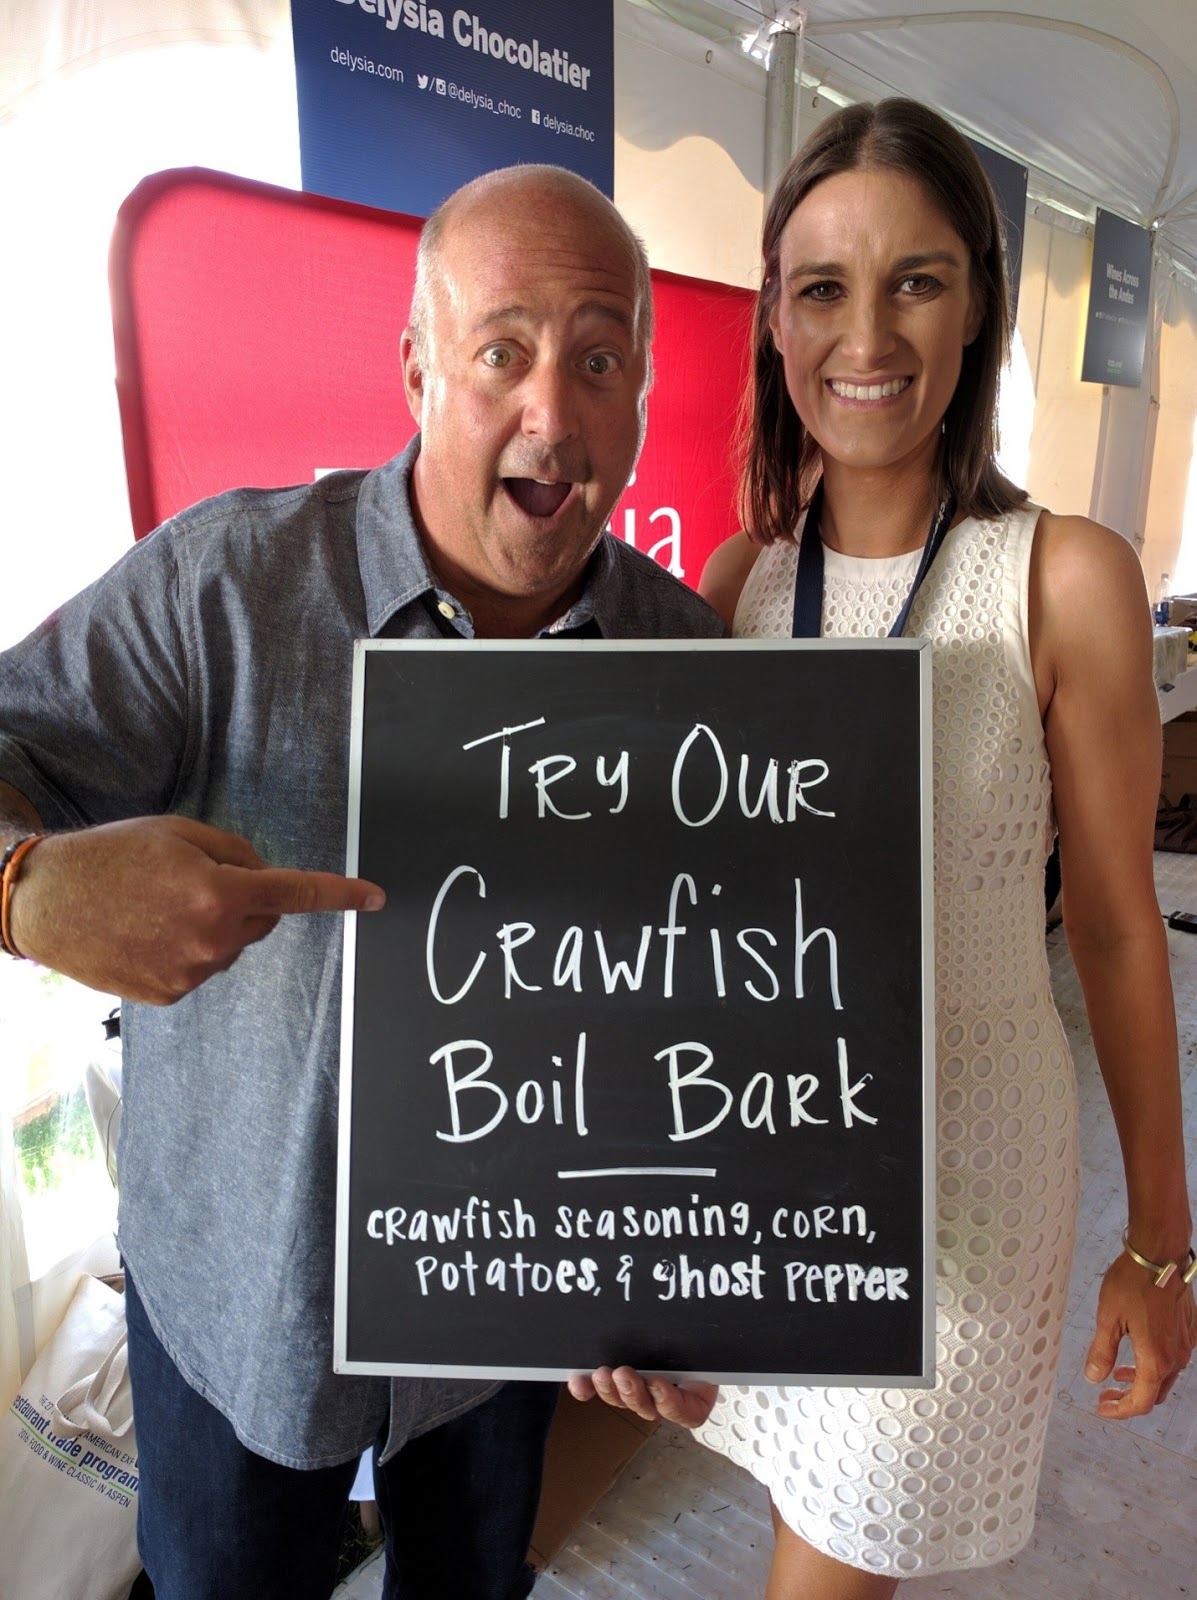 Delysia Chocolatier
delysia.com /@delysia_choc delysia.choc
Wines Across
the Andes
TRY OUR
CRawfish
Boil BaRk
cRawfish seasoning, coRn,
potatoes, & ghost pepper
restaurant trade program
2016 FOOD & WINE CLASSIC IN ASPEN